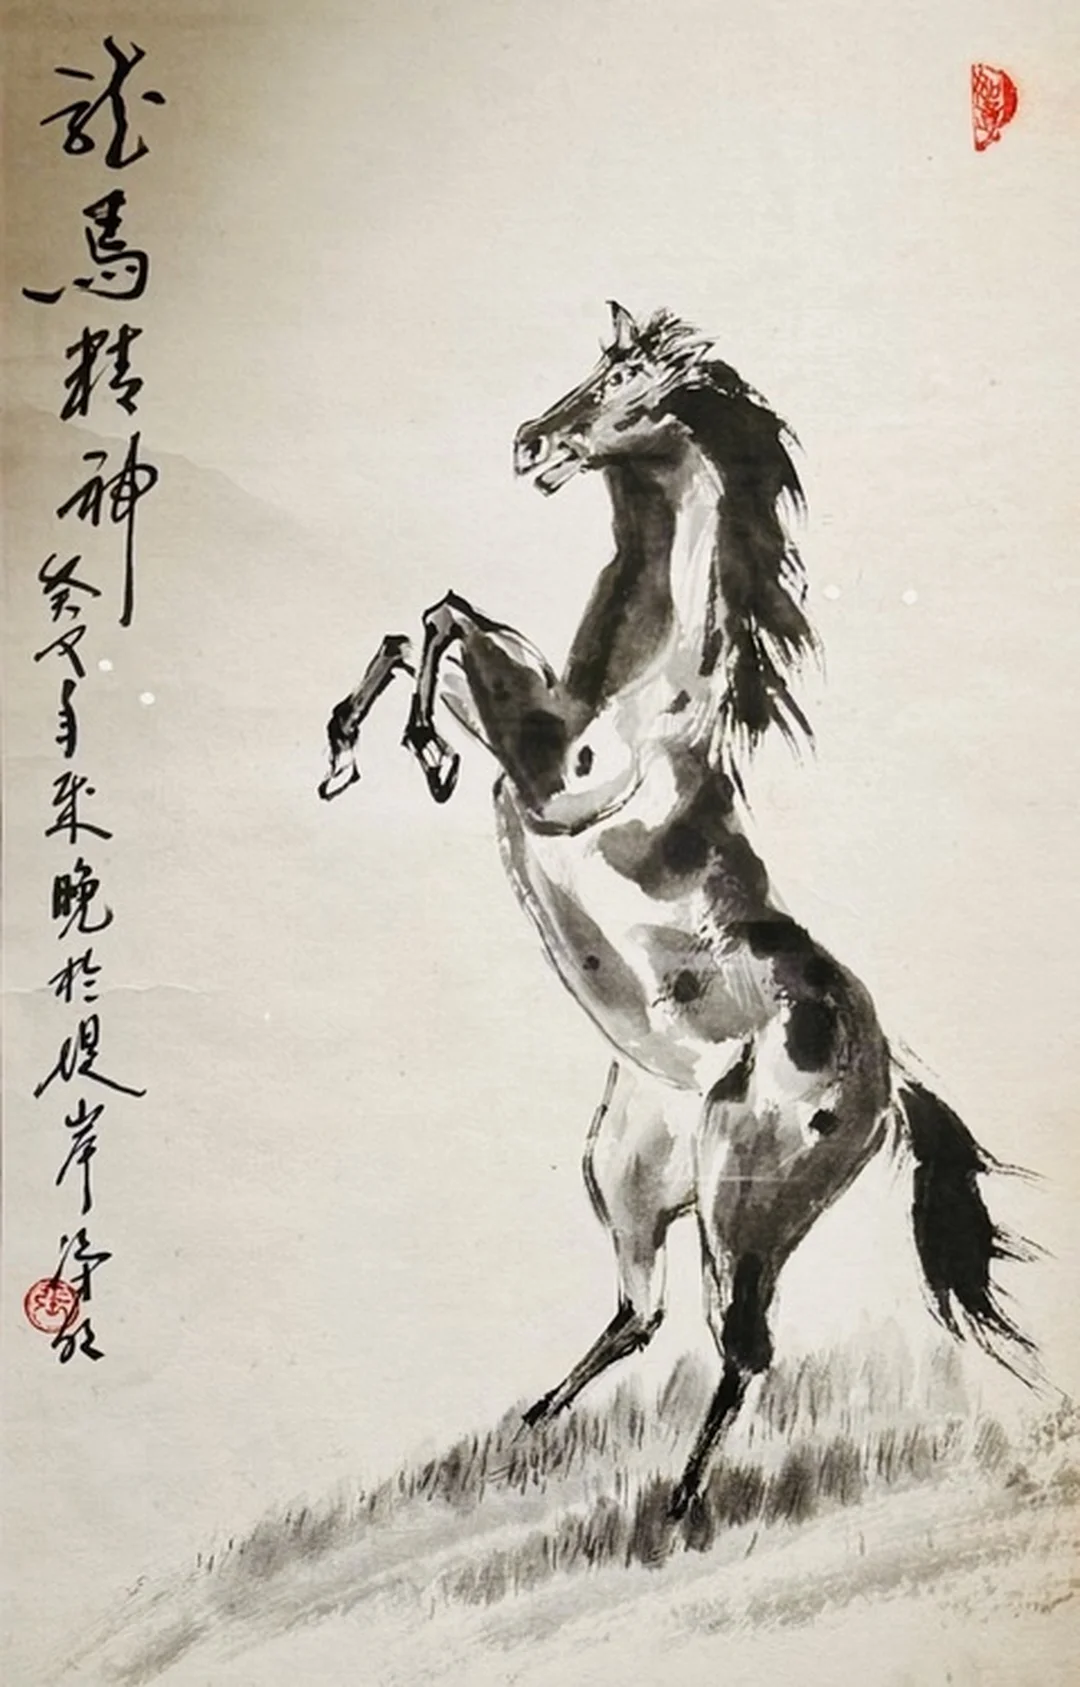 龍馬精神
癸未年秋晚於堤岸